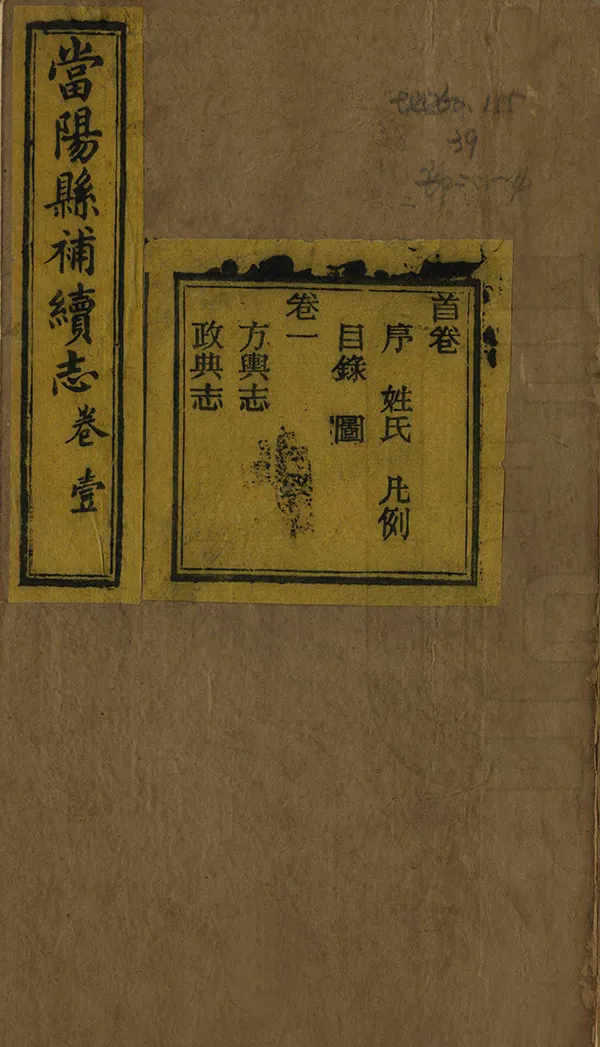 當陽縣補續志 卷壹
首卷
序 姓氏 凡例
目錄 圖
卷一
方輿志
政典志
39